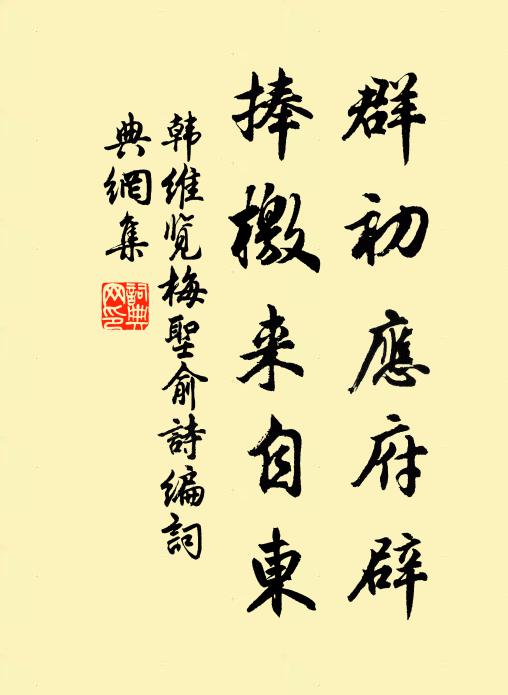 群初應府辟
捧檄来自東
韩維览梅聖俞詩编詞
典網集
詞典网印